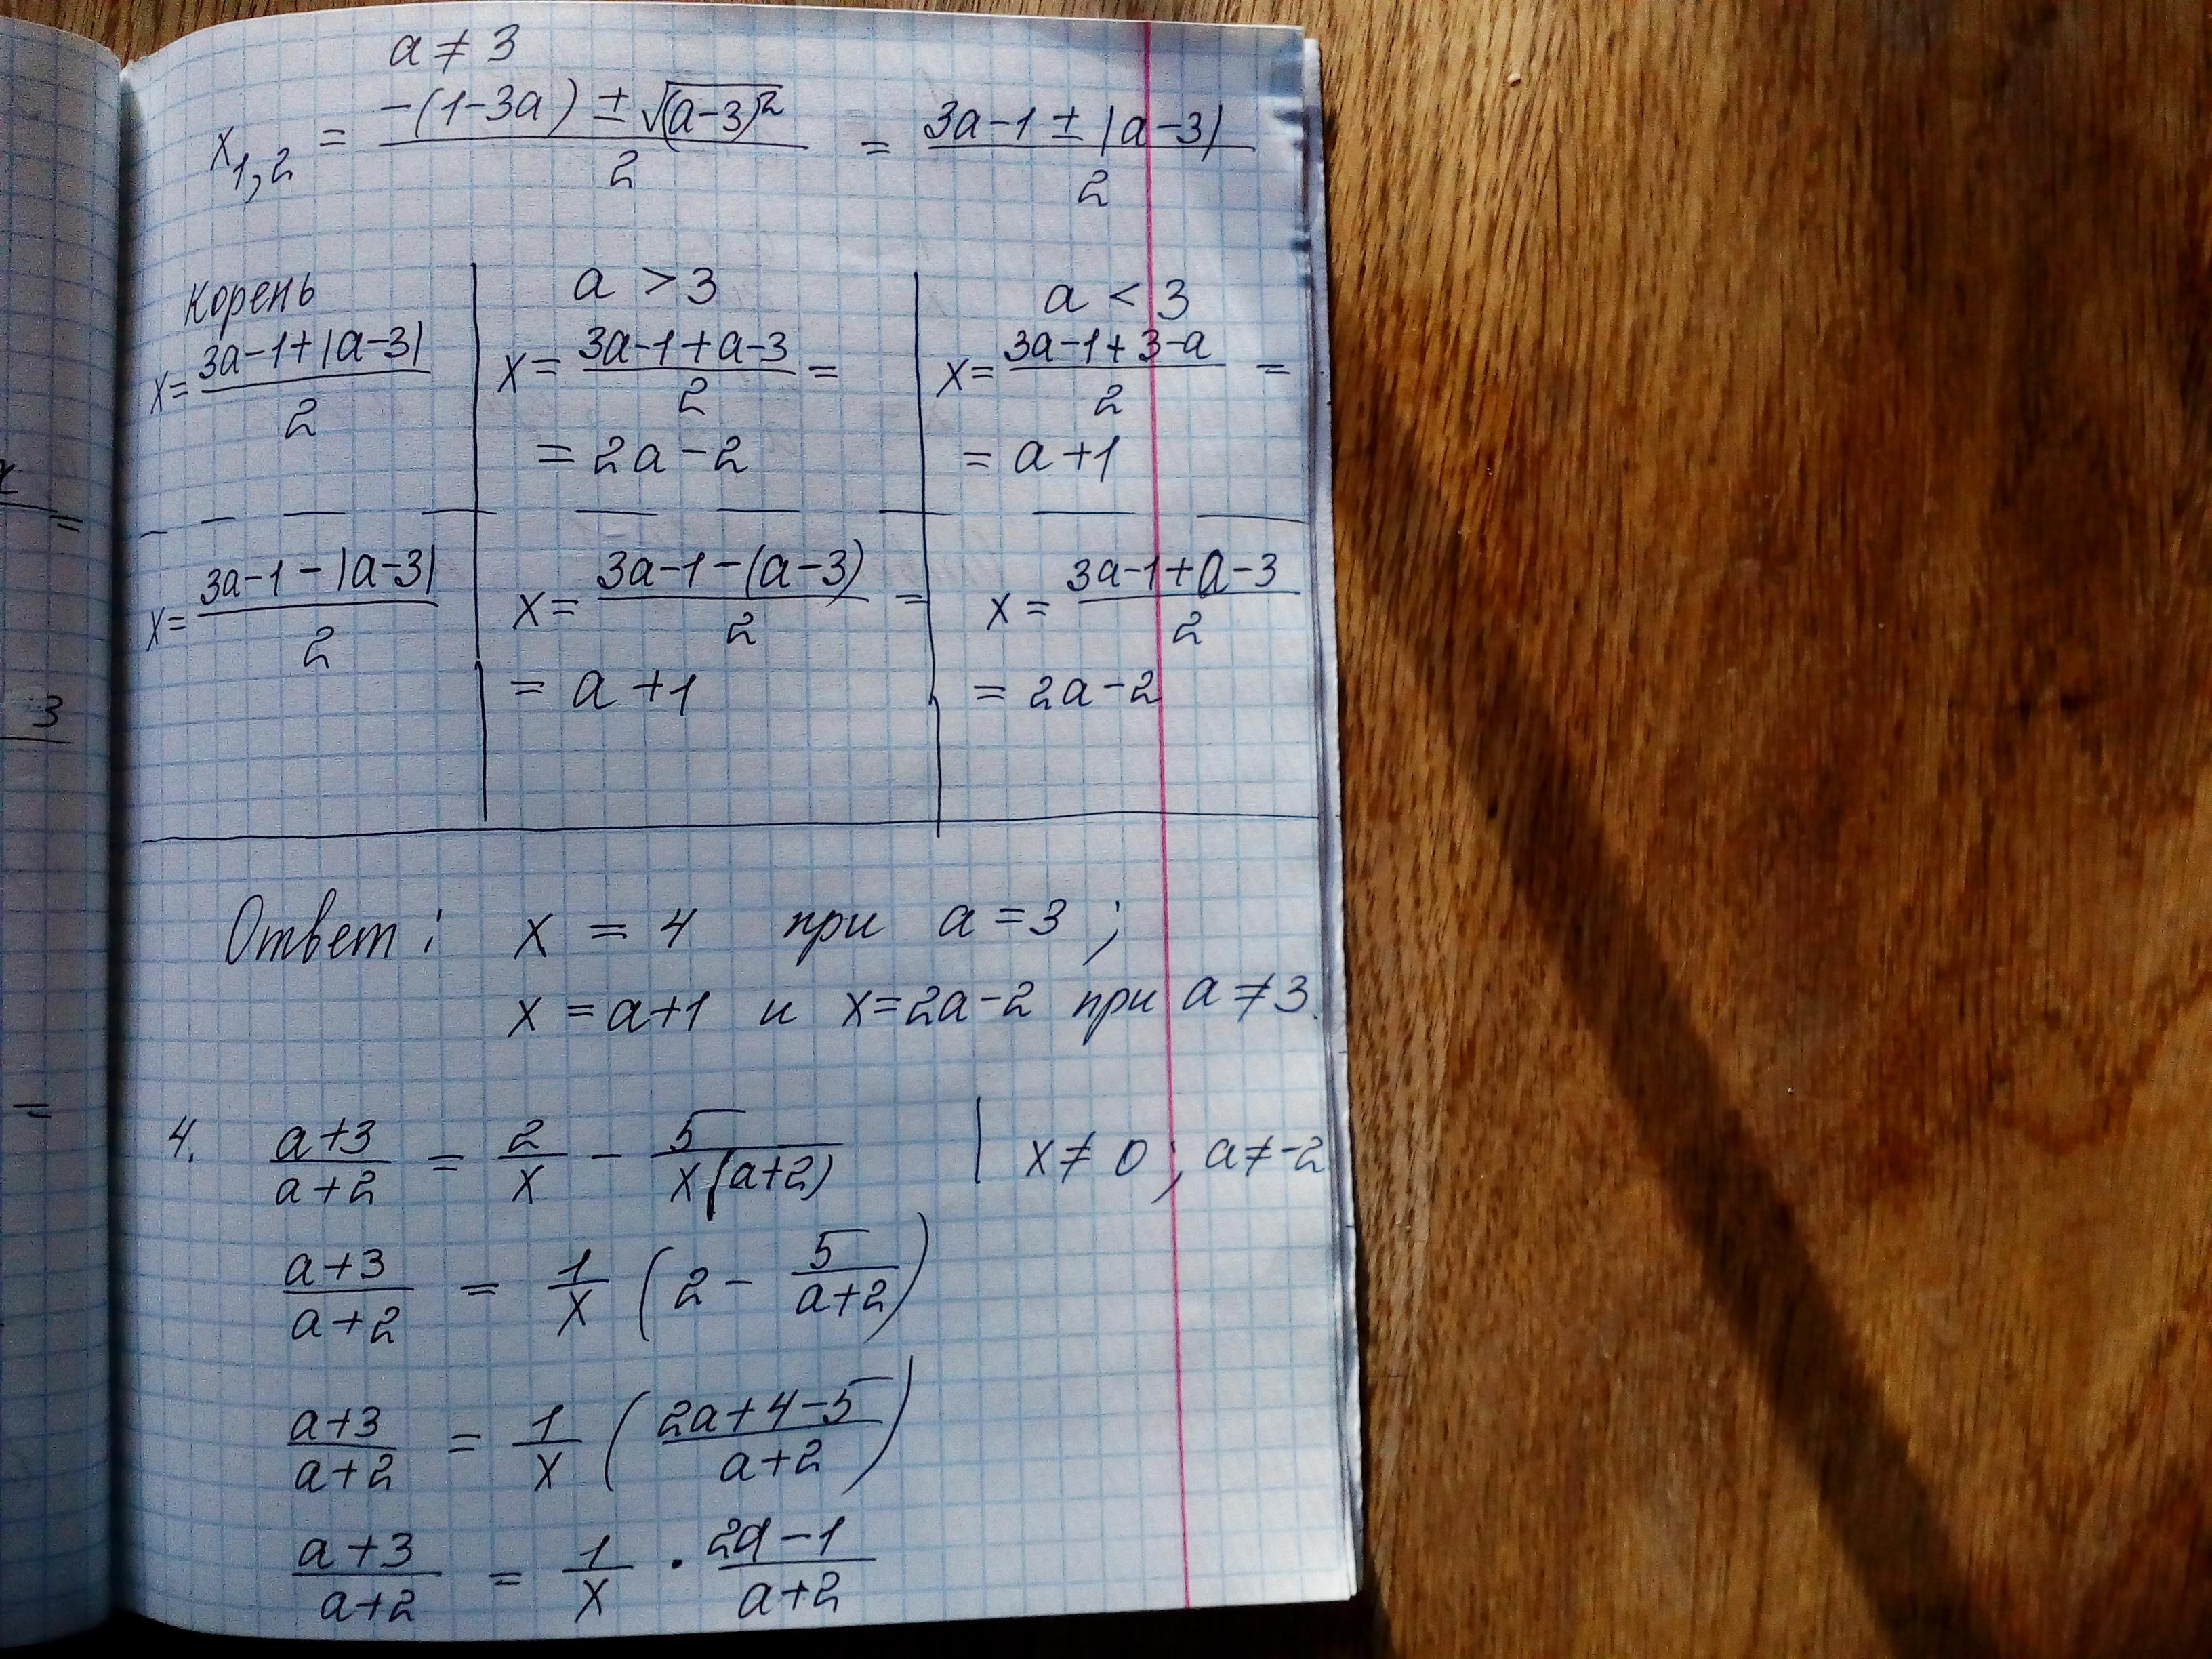 a ≠ 3
x₁,₂ = (-(1-3a) ± √(a-3)²)/2 = (3a-1 ± |a-3|)/2
корень | a > 3 | a < 3
x = (3a-1+|a-3|)/2 | x = (3a-1+a-3)/2 = | x = (3a-1+3-a)/2 =
= 2a-2 | = a+1
x = (3a-1-|a-3|)/2 | x = (3a-1-(a-3))/2 = | x = (3a-1+a-3)/2
= a+1 | = 2a-2
Ответ: x = 4 при a = 3;
x = a+1 и x = 2a-2 при a ≠ 3.
4. (a+3)/(a+2) = 2/x - 5/(x(a+2)) | x ≠ 0; a ≠ -2
(a+3)/(a+2) = 1/x (2 - 5/(a+2))
(a+3)/(a+2) = 1/x ((2a+4-5)/(a+2))
(a+3)/(a+2) = 1/x · (2a-1)/(a+2)
=
3
=